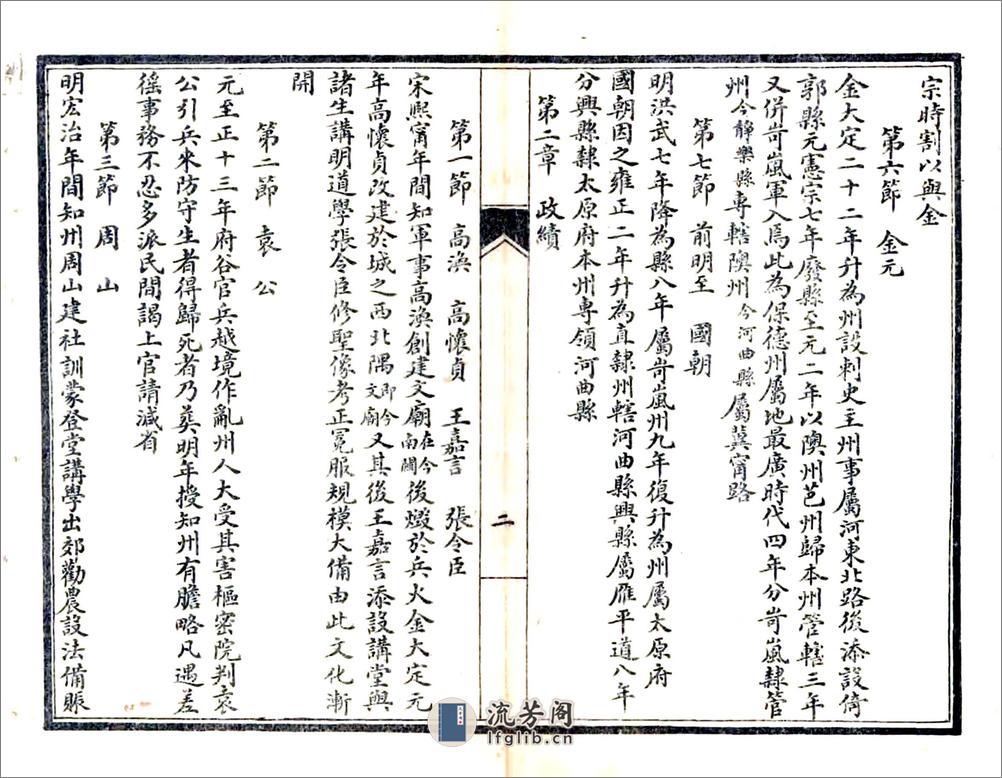 宗時割以與金
第六節 金元
金大定二十二年升為州設刺史主州事屬河東北路後添設倚
郭縣元憲宗七年廢縣至元二年以隩州芭州歸本州管轄三年
又併岢嵐軍入焉此為保德州屬地最廣時代四年分岢嵐隸管
州今靜樂縣專轄隩州今河曲縣屬冀甯路
第七節 前明至 國朝
明洪武七年降為縣八年屬岢嵐州九年復升為州屬太原府
國朝因之雍正二年升為直隸州轄河曲縣興縣屬雁平道八年
分興縣隸太原府本州專領河曲縣
第二章 政績
二
第一節 高渙 高懷貞 王嘉言 張令臣
宋熙甯年間知軍事高渙創建文廟在今南關後燬於兵火金大定元
年高懷貞改建於城之西北隅即今文廟又其後王嘉言添設講堂與
諸生講明道學張令臣修聖像考正冕服規模大備由此文化漸
開
第二節 袁公
元至正十三年府谷官兵越境作亂州人大受其害樞密院判袁
公引兵來防守生者得歸死者乃葬明年授知州有膽略凡遇差
徭事務不忍多派民間謁上官請減省
第三節 周山
明宏治年間知州周山建社訓蒙登堂講學出郊勸農設法備賑
流芳阁
lfglib.cn